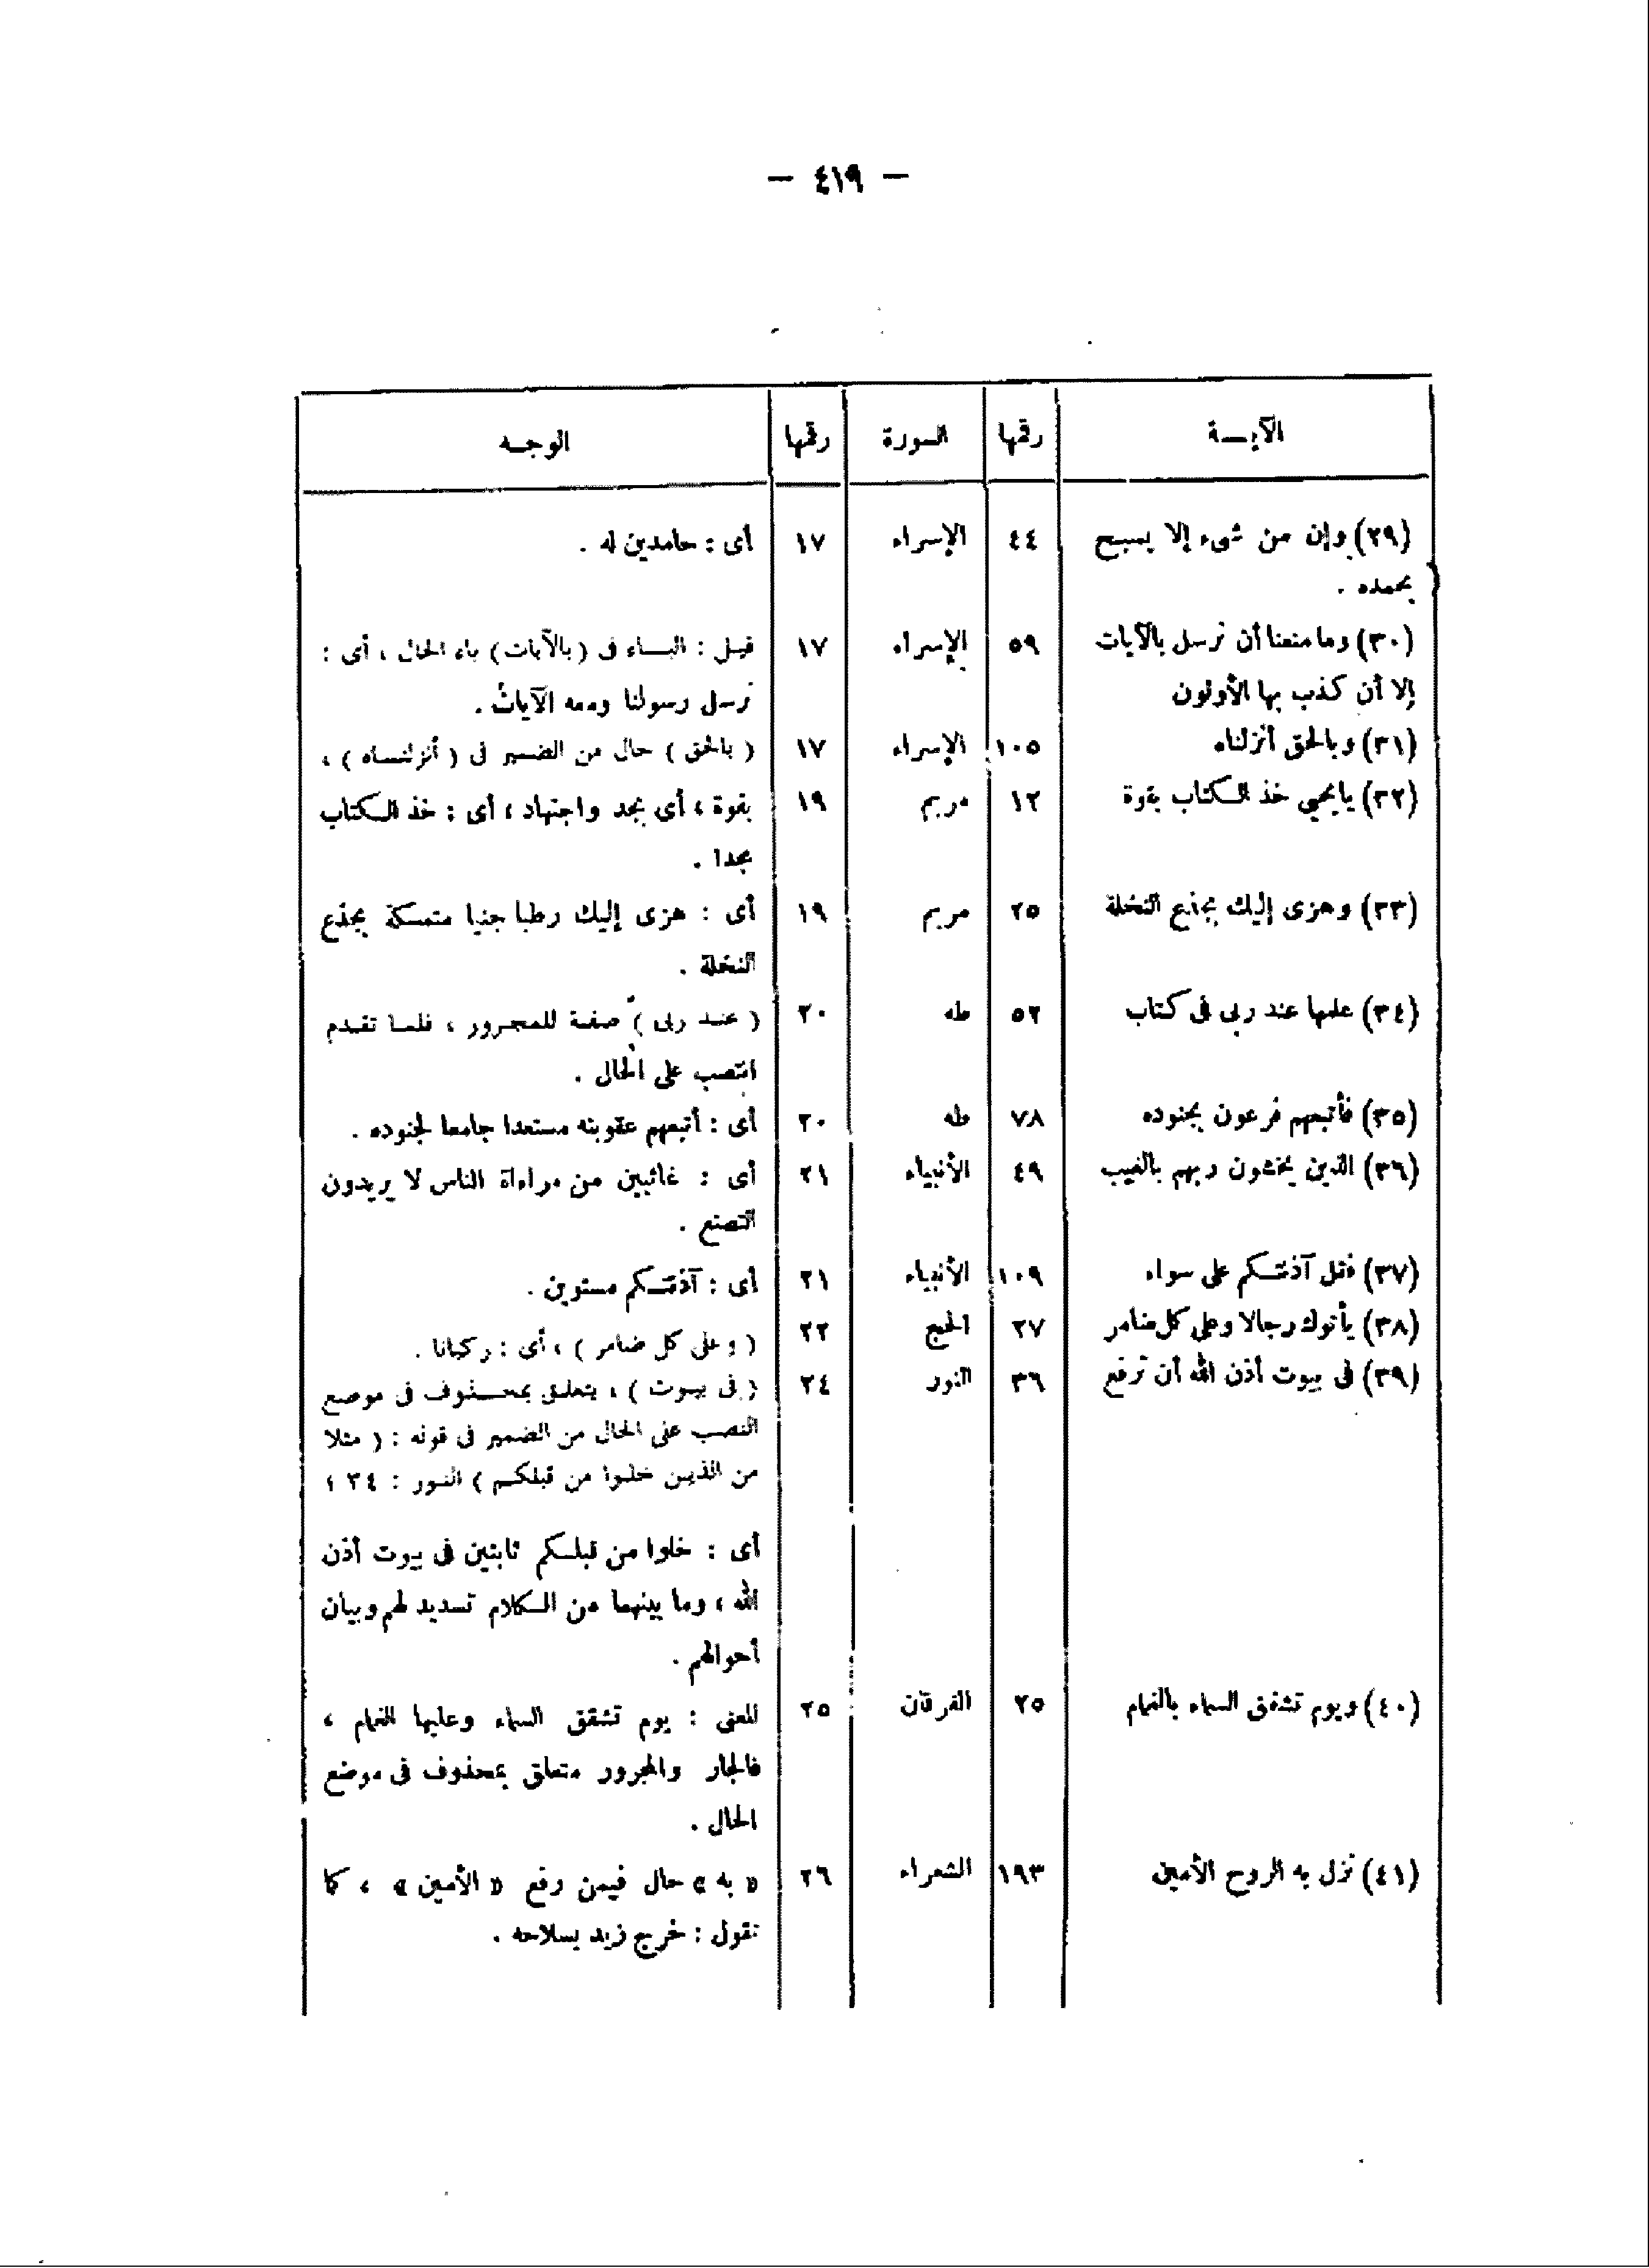 — ٤١٩ —
الآيـــة رقمها السورة رقمها الوجــه
(٢٩) وإن من شىء إلا يسبح ٤٤ الإسراء ١٧ أى : حامدين له .
بحمده .
(٣٠) وما منعنا أن نرسل بالآيات ٥٩ الإسراء ١٧ قيـل : البـــاء فى (بالآيات) باء الحال ، أى :
إلا أن كذب بها الأولون نرسل رسولنا ومعه الآيات .
(٣١) وبالحق أنزلناه ١٠٥ الإسراء ١٧ ( بالحق ) حال من الضمير فى ( أنزلنــاه ) ،
(٣٢) يايحيى خذ الكتاب بقوة ١٢ مريم ١٩ بقوة ، أى بجد واجتهاد ، أى : خذ الكتاب
مجدا .
(٣٣) وهزى إليك بجذع النخلة ٢٥ مريم ١٩ أى : هزى إليك رطبا جنيا متمسكة بجذع
النخلة .
(٣٤) علمها عند ربى فى كتاب ٥٢ طه ٢٠ ( عنـد ربى ) صفـة للمجـرور ، فلمـا تقـدم
انتصب على الحال .
(٣٥) فأتبعهم فرعون بجنوده ٧٨ طه ٢٠ أى : أتبعهم عقوبته مستعدا جامعا لجنوده .
(٣٦) الذين يخشون ربهم بالغيب ٤٩ الأنبياء ٢١ أى : غائبين من مراءاة الناس لا يريدون
التصنع .
(٣٧) فقل آذنتـكم على سواء ١٠٩ الأنبياء ٢١ أى : آذنتـكم مستوين .
(٣٨) يأتوك رجالا وعلى كل ضامر ٢٧ الحج ٢٢ ( وعلى كل ضامر ) ، أى : ركبانا .
(٣٩) فى بيوت أذن الله أن ترفع ٣٦ النور ٢٤ ( فى بيـوت ) ، يتعلـق بمحــذوف فى موضع
النصب على الحال من الضمير فى قوله : ( مثلا
من الذيـن خلـوا من قبلكـم ) النـور : ٣٤ ،
أى : خلوا من قبلـكم ثابتين فى بيوت أذن
الله ، وما بينهما من الـكلام تسديد لهم وبيان
أحوالهم .
(٤٠) ويوم تشقق السماء بالغمام ٢٥ الفرقان ٢٥ المعنى : يوم تشقق السماء وعليها الغمام ،
فالجار والمجرور متعلق بمحذوف فى موضع
الحال .
(٤١) نزل به الروح الأمين ١٩٣ الشعراء ٢٦ « به » حال فيمن رفع « الأمين » ، كما
نقول : خرج زيد بسلاحه .